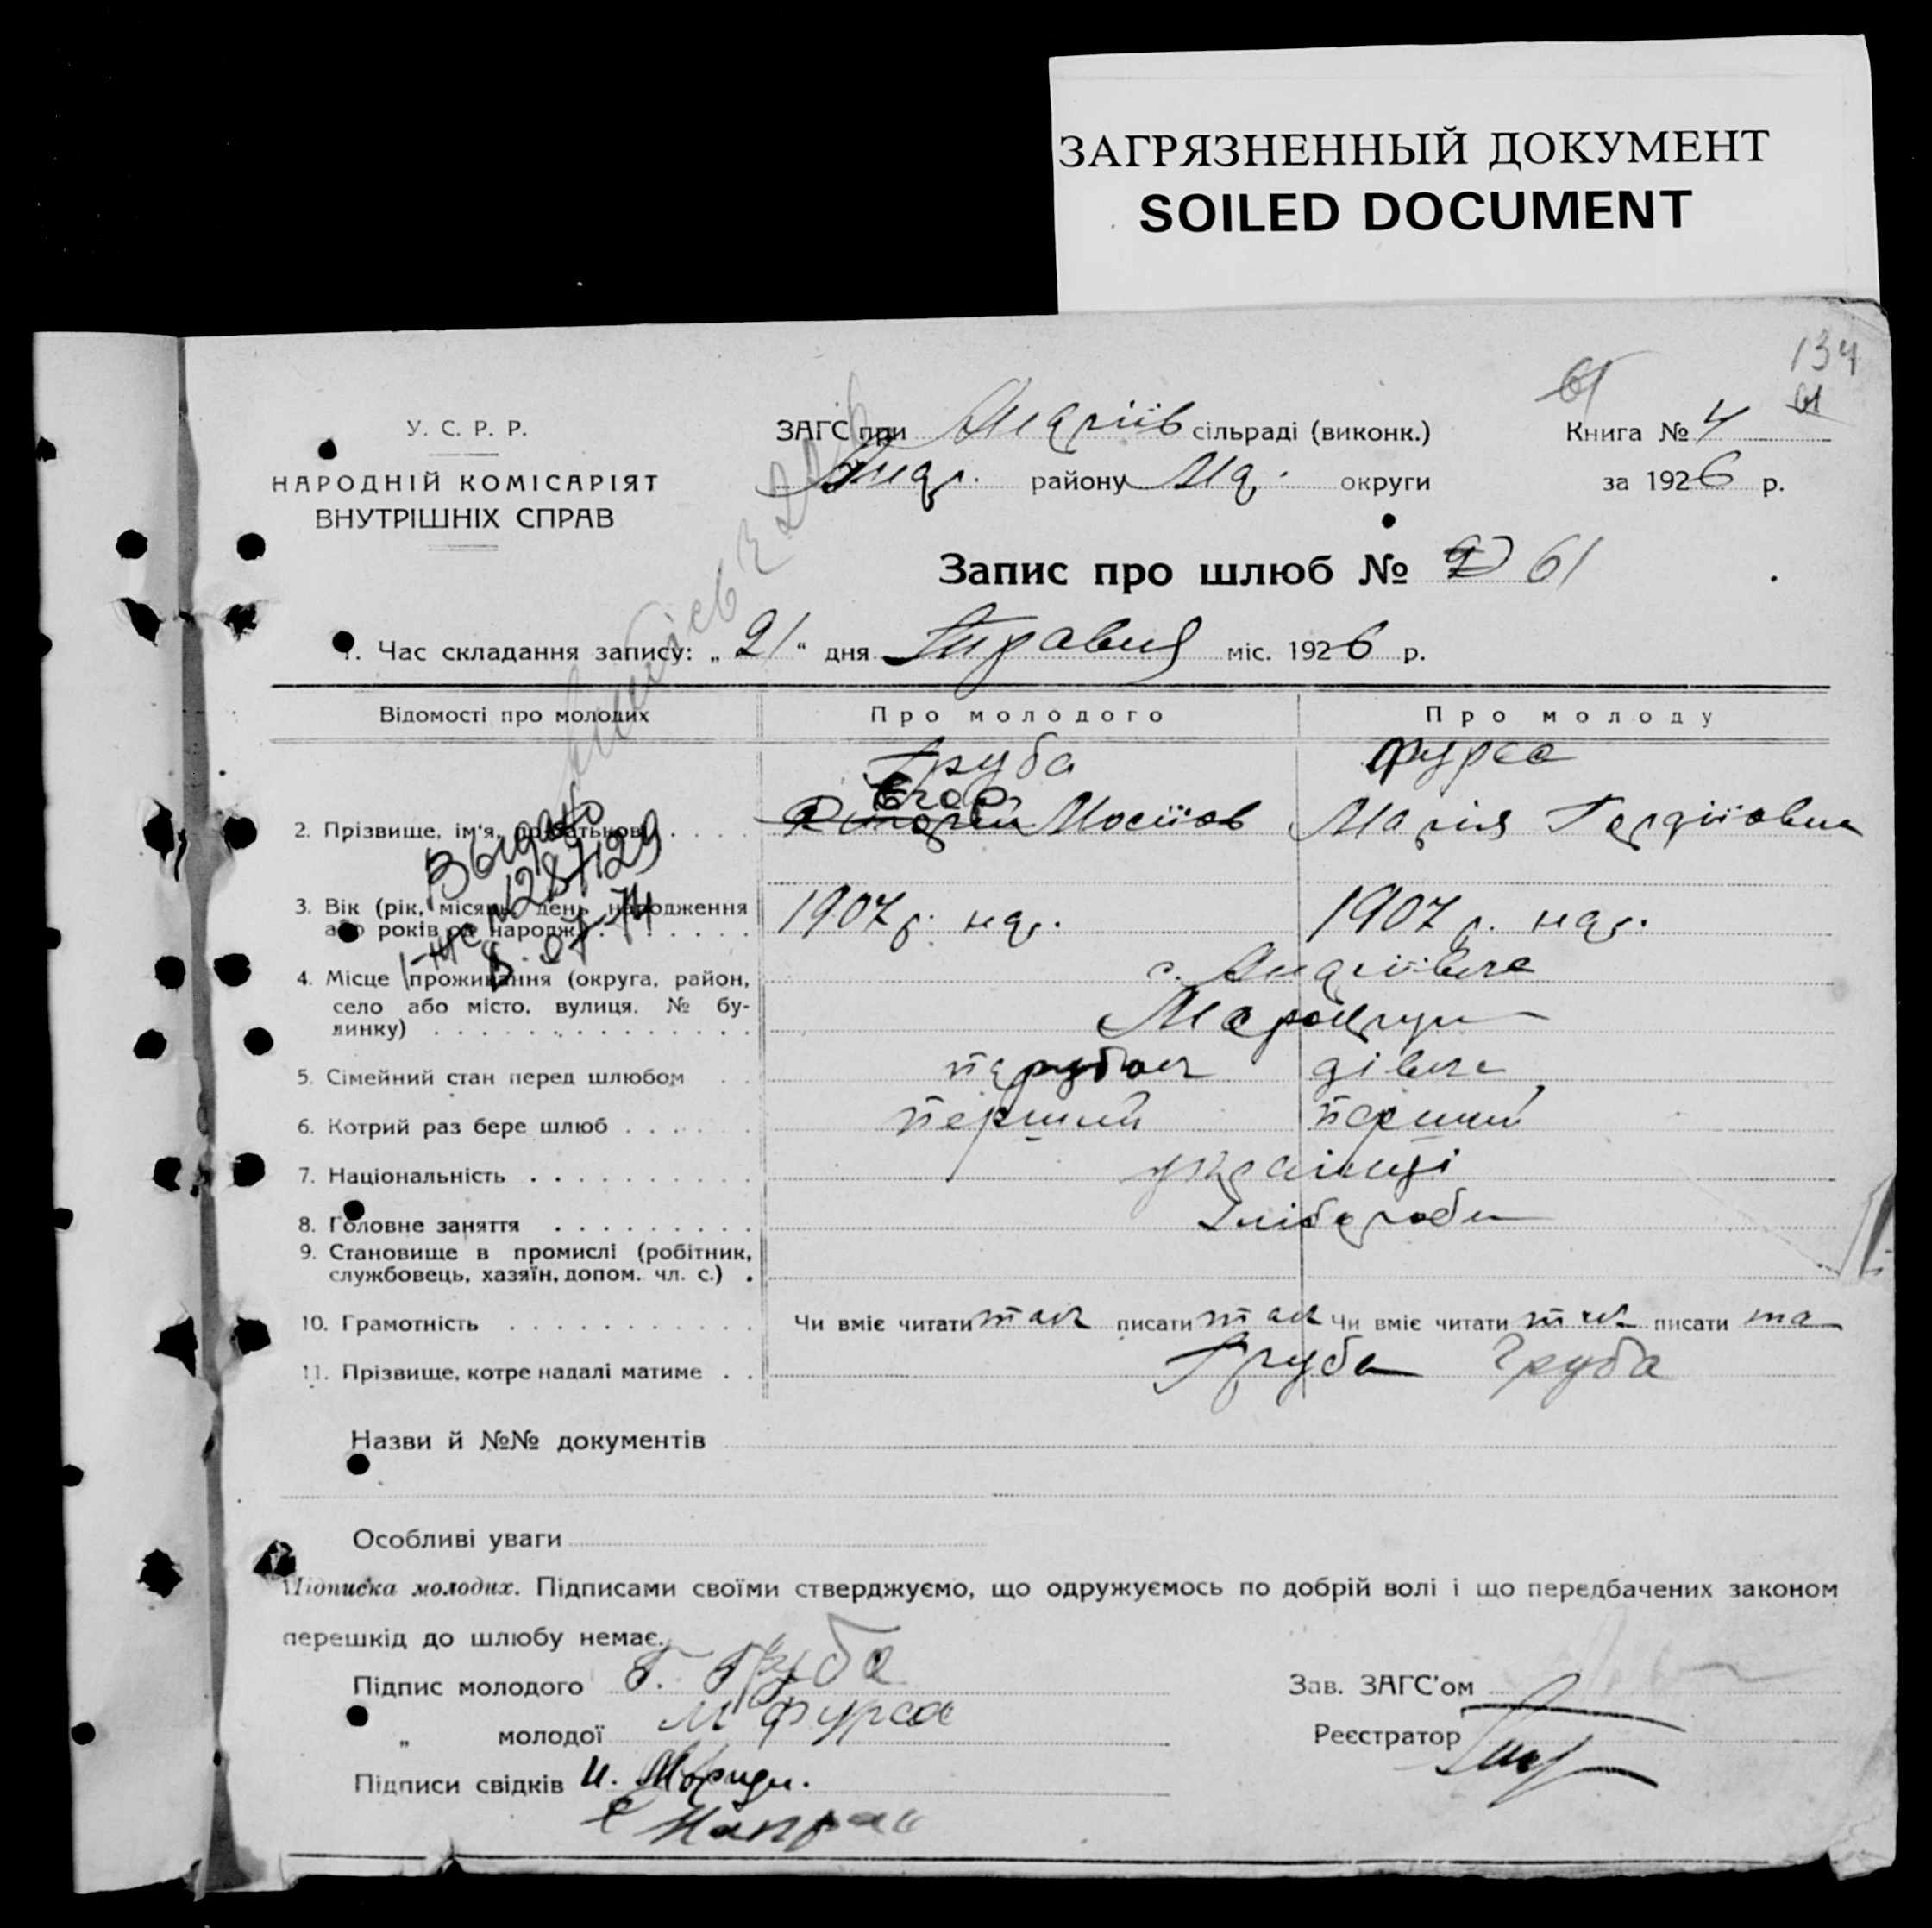 ЗАГРЯЗНЕННЫЙ ДОКУМЕНТ
SOILED DOCUMENT
134
61
61
У. С. Р. Р.
НАРОДНІЙ КОМІСАРІЯТ
ВНУТРІШНІХ СПРАВ
ЗАГС при Андріїв сільраді (виконк.)
Книга № 4
району Ма. округи
за 1926 р.
Запис про шлюб № 61
1. Час складання запису: „21“ дня Травня міс. 1926 р.
Відомості про молодих
Про молодого
Про молоду
Груба
Фурса
Егор
2. Прізвище, ім'я, по батькові Мосіїов Марія Гордіїовна
Выдано
128/129
8.07-74
3. Вік (рік, місяць, день народження
або років од народж.)
1907 р. нар.
1907 р. нар.
4. Місце проживання (округа, район,
село або місто, вулиця, № бу-
динку)
с. Андріївка
5. Сімейний стан перед шлюбом парубок дівка
6. Котрий раз бере шлюб перший перший
7. Національність українці
8. Головне заняття хлібороби
9. Становище в промислі (робітник,
службовець, хазяїн, допом. чл. с.)
10. Грамотність Чи вміє читати так писати так Чи вміє читати так писати та
11. Прізвище, котре надалі матиме Груба Груба
Назви й №№ документів
Особливі уваги
Підписка молодих. Підписами своїми стверджуємо, що одружуємось по добрій волі і що передбачених законом
перешкід до шлюбу немає.
Підпис молодого Г. Груба
Зав. ЗАГС'ом
„ молодої М Фурса
Реєстратор
Підписи свідків И.